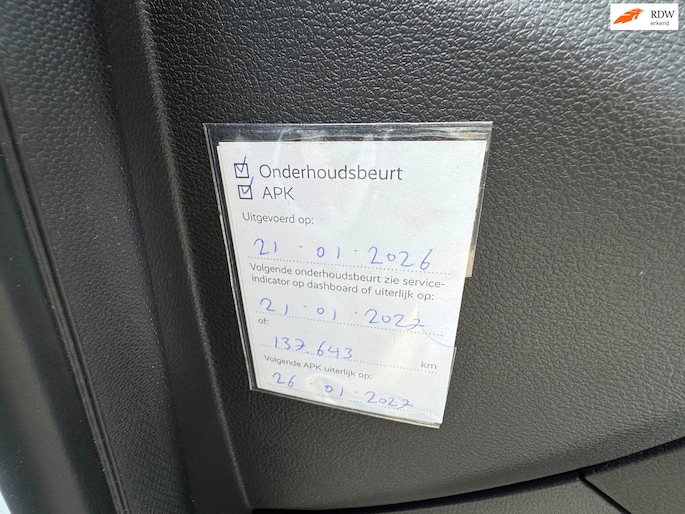 RDW
erkend
Onderhoudsbeurt
APK
Uitgevoerd op:
21-01-2026
Volgende onderhoudsbeurt zie service-
indicator op dashboard of uiterlijk op:
21-01-2027
of:
137.643 km
Volgende APK uiterlijk op:
26 01-2027